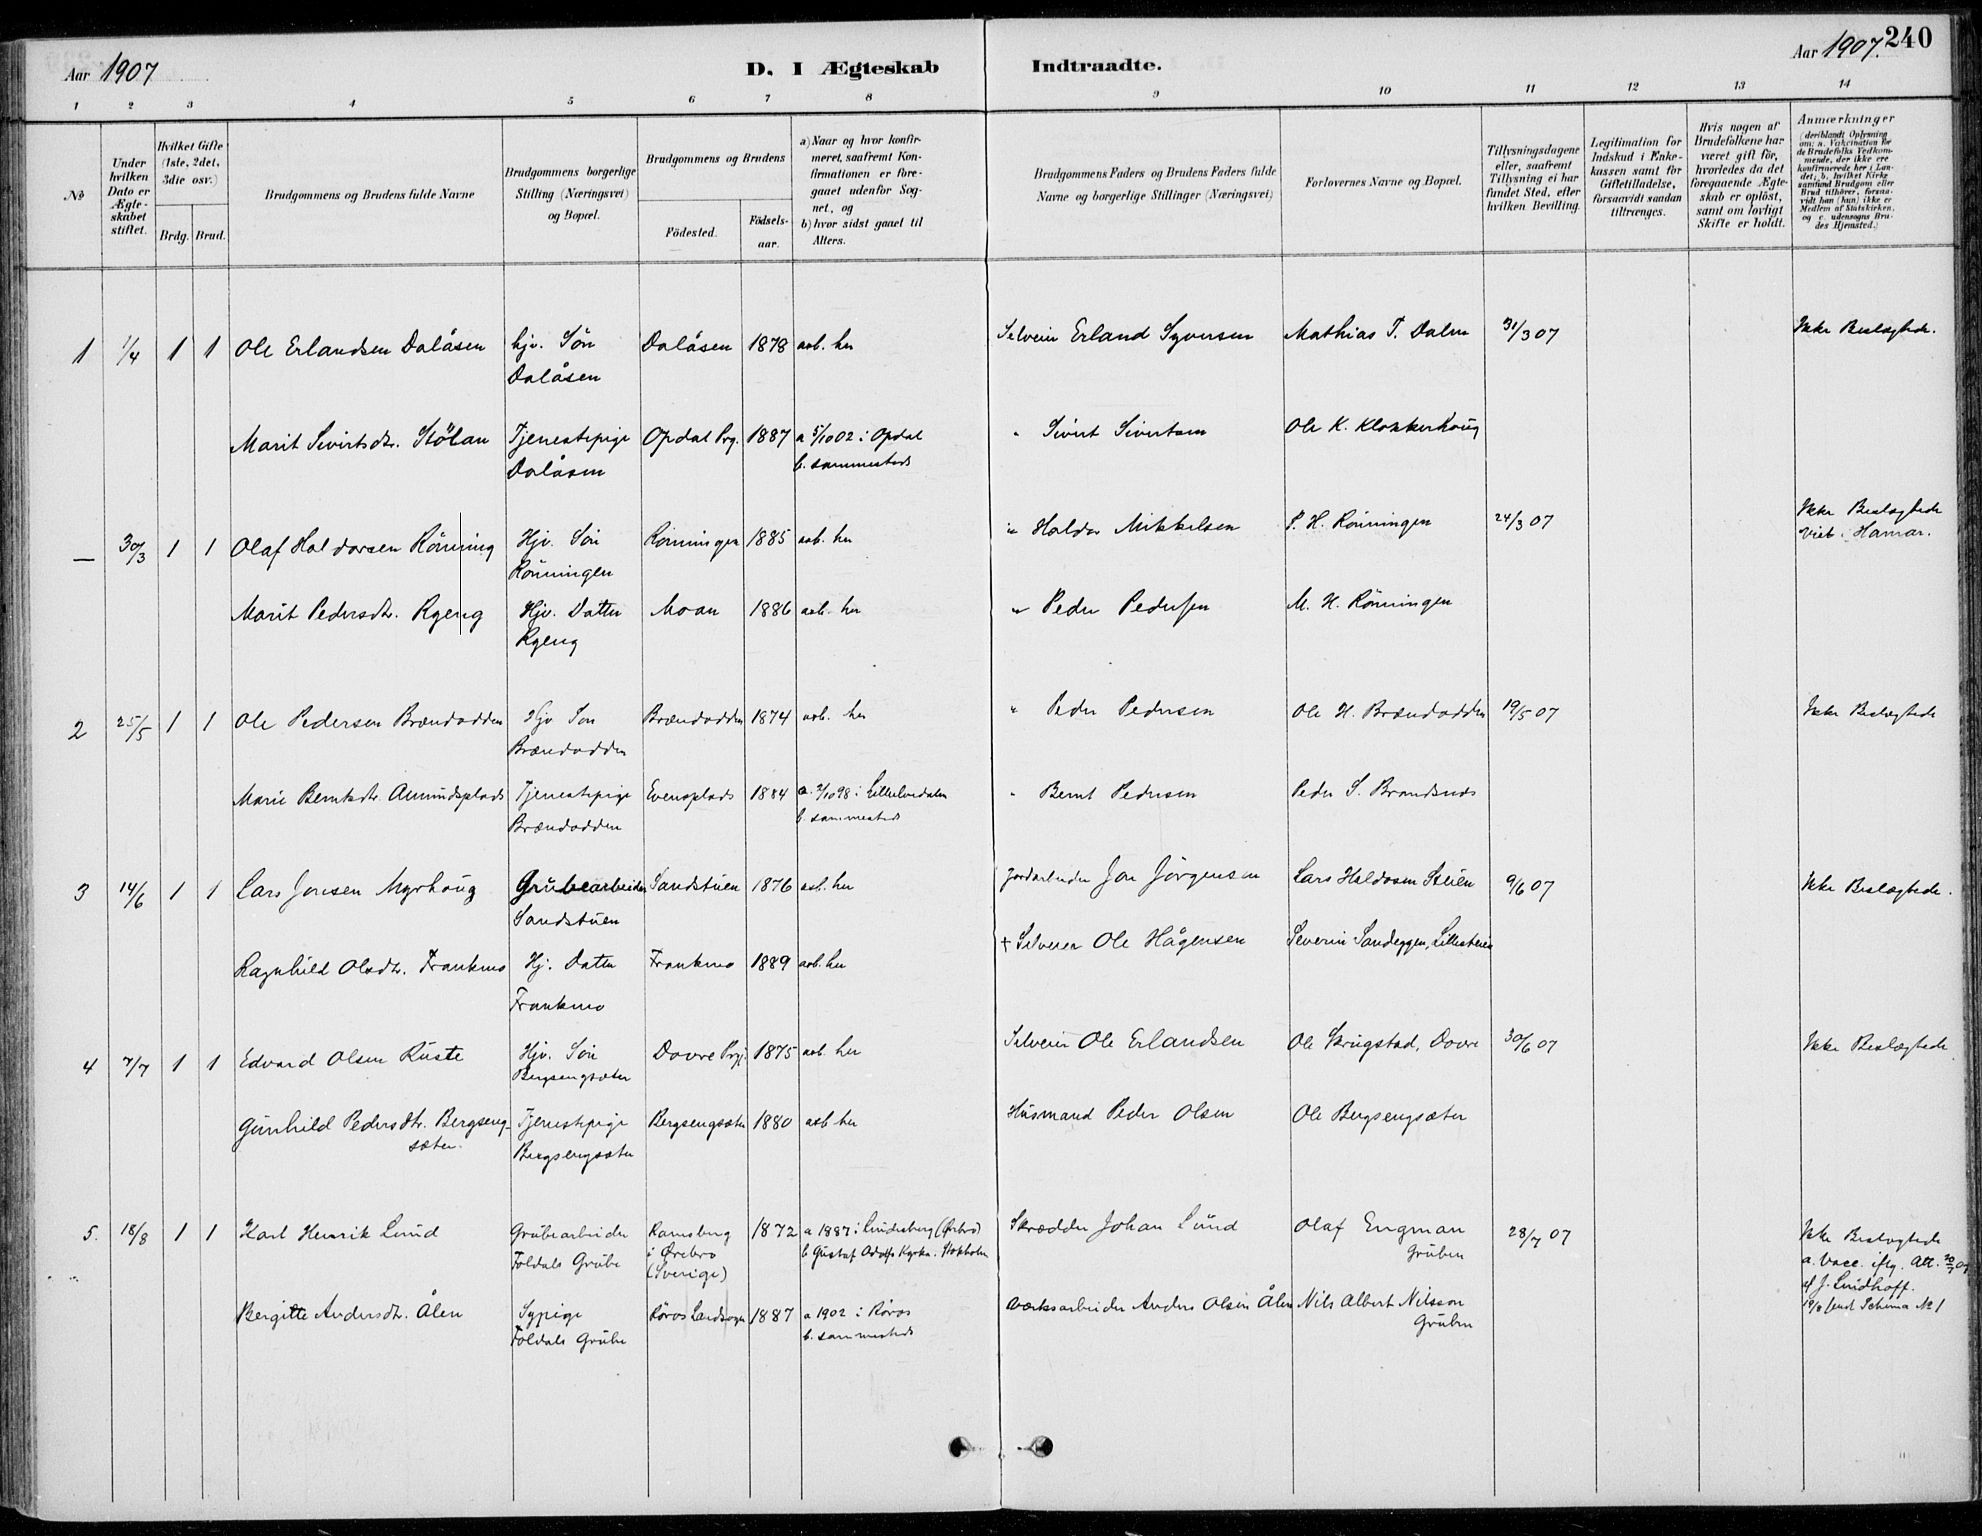 Aar 1907
D. I Ægteskab Indtraadte.
Aar 1907. 240
1 2 3 4 5 6 7 8 9 10 11 12 13 14
No
Under hvilken Dato er Ægteskabet stiftet.
Hvilket Gifte (1ste, 2det, 3die osv.)
Brdg. Brud.
Brudgommens og Brudens fulde Navne
Brudgommens borgerlige Stilling (Næringsvei) og Bopæl.
Brudgommens og Brudens
Födested. Födselsaar.
a) Naar og hvor konfirmeret, saafremt Konfirmationen er foregaaet udenfor Sognet, og
b) hvor sidst gaaet til Alters.
Brudgommens Faders og Brudens Faders fulde Navne og borgerlige Stillinger (Næringsvei)
Forlovernes Navne og Bopæl.
Tillysningsdagene eller, saafremt Tillysning ei har fundet Sted, efter hvilken Bevilling.
Legitimation for Indskud i Enkekassen samt for Giftetilladelse, forsaavidt saadan tiltrænges.
Hvis nogen af Brudefolkene har været gift för, hvorledes da det foregaaende Ægteskab er oplöst, samt om lovligt Skifte er holdt.
Anmærkninger (deriblandt Oplysning om: a. Vakcination for de Brudefolks Vedkommende, der ikke ere konfirmerede her i Landet, b. hvilket Kirkesamfund Brudgom eller Brud tilhörer, forsaavidt han (hun) ikke er Medlem af Statskirken, og c. udensogns Brudes Hjemsted.)
1 1/4 1 1 Ole Erlandsen Dalåsen hjv. Sön Dalåsen Dalåsen 1878 aob. her Selveier Erland Syversen Mathias T. Dalen 31/3 07 Ikke Beslægtede.
Marit Sivertsdtr. Stölan Tjenestepige Dalåsen Opdal Prg. 1887 a 5/10 02 i Opdal b. sammesteds " Sivert Sivertsen Ole K. Klokkerhoug
— 30/3 1 1 Olaf Haldorsen Rönning Hjv. Sön Rönningen Rönningen 1885 aob. her " Haldor Mikkelsen P. H. Rönningen 24/3 07 Ikke Beslægtede Viet i Hamar.
Marit Pedersdtr. Ryeng Hjv. Datter Ryeng Moan 1886 aob. her " Peder Pedersen M. H. Rönningen
2 25/5 1 1 Ole Pedersen Brændodden Hjv Sön Brændodden Brændodden 1874 aob. her " Peder Pedersen Ole H. Brændodden 19/5 07 Ikke Beslægtede
Marie Berntsdtr. Amundsplads Tjenestepige Brændodden Evensplads 1884 a. 2/10 98 i Lilleelvedalen b. sammesteds " Bernt Pedersen Peder S. Brandsnes
3 14/6 1 1 Lars Jonsen Myrhoug Grubearbeider Sandstuen Sandstuen 1876 aob. her Jordarbeider Jon Jörgensen Lars Haldorsen Steien 9/6 07 Ikke Beslægtede.
Ragnhild Olsdtr. Frankmo Hj. Datter Frankmo Frankmo 1889 aob. her † Selveier Ole Hågensen Severin Sandeggen, Lillesteien
4 7/7 1 1 Edvard Olsen Ruste Hjv. Sön Bergsengsæter Dovre Prgj. 1875 aob. her Selveier Ole Erlandsen Ole Skrugstad, Dovre 30/6 07 Ikke Beslægtede
Gunhild Pedersdtr. Bergsengsæter. Tjenestepige Bergsengsæter Bergsengsæter 1880 aob her Husmand Peder Olsen Ole Bergsengsæter
5. 18/8 1 1 Karl Henrik Lund Grubearbeider Foldals Grube Ramsberg i Örebro (Sverige) 1872 a 1887 i Lindesberg (Örebro) b Gustaf Adolfs Kyrka. Stokholm Skrædder Johan Lund Olaf Engman Gruben 28/7 07 Ikke Beslægtede a. Vacc. iflg. Att. af J. Lindhoff. 19/8 sendt Schema No 1
Bergitte Andersdtr. Ålen Sypige Foldals Grube Röros Landsogn 1887 a 1902 i Röros b. sammesteds Værksarbeider Anders Olsen Ålen Nils Albert Nilsson Gruben